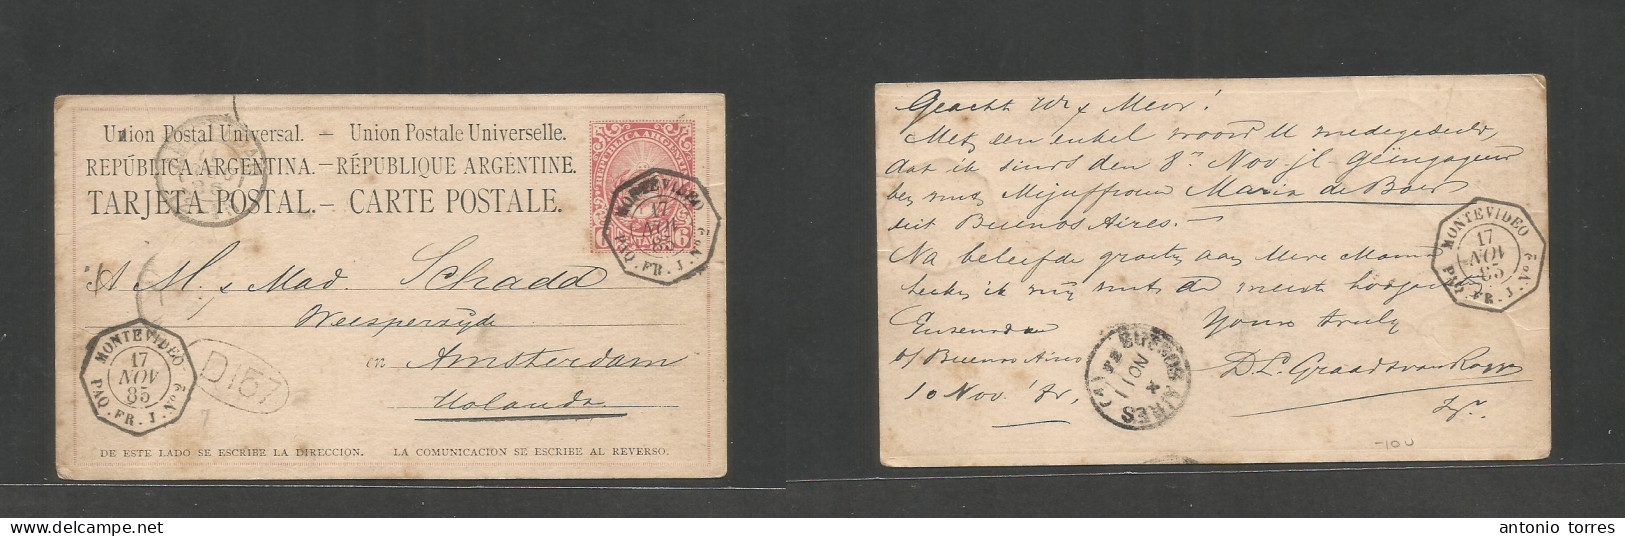 Union Postal Universal. — Union Postale Universelle.
REPÚBLICA ARGENTINA. — RÉPUBLIQUE ARGENTINE.
TARJETA POSTAL. — CARTE POSTALE.
REPUBLICA ARGENTINA
6 CENTAVOS 6
MONTEVIDEO
17
NOV
85
PAQ. FR. J. Nº 2
A M. & Mad. Schadd
Weesperzijde
en Amsterdam
Holanda
MONTEVIDEO
17
NOV
85
PAQ. FR. J. Nº 2
D157
DE ESTE LADO SE ESCRIBE LA DIRECCION. LA COMUNICACION SE ESCRIBE AL REVERSO.
Geacht Mevr!
Met een enkel woord U medegedeeld,
dat ik sinds den 8n Nov jl geëngageerd
ben met Mejuffrouw Maria de Boer
uit Buenos Aires.
Na beleefde groeten aan Mevr Mama
ik mij met de meeste
MONTEVIDEO
17
NOV
85
PAQ. FR. J. Nº 2
Ensenada Yours truly
b/ Buenos Aires
10 Nov. 85,
BUENOS AIRES
NOV 11
-10U
antonio torres